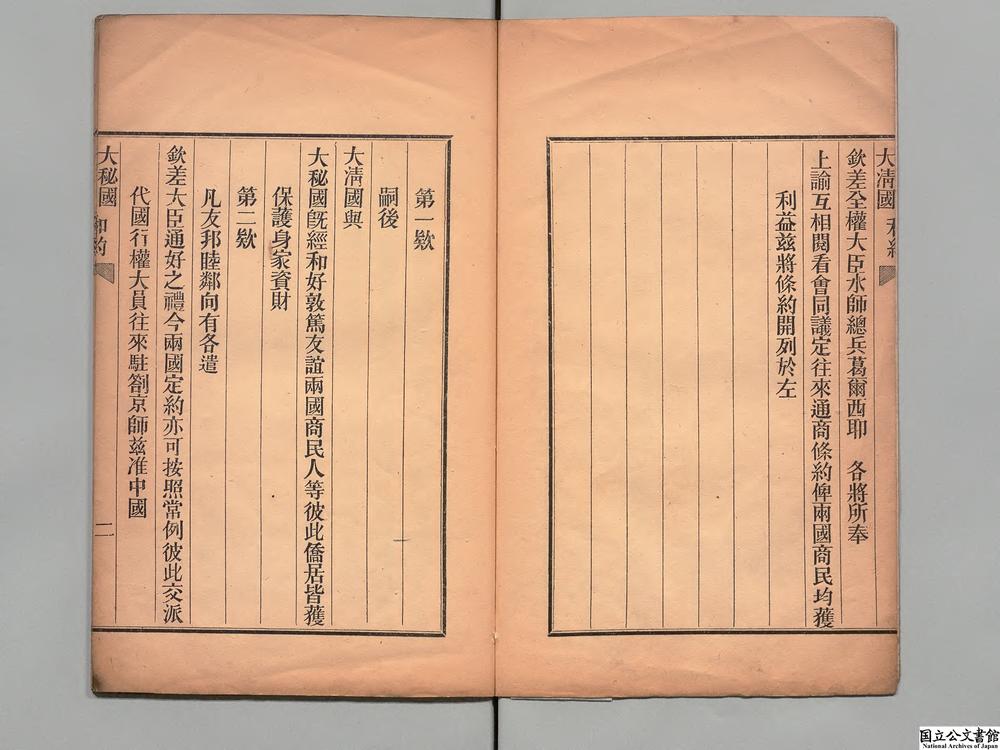 大清國 和約
欽差全權大臣水師總兵葛爾西耶 各將所奉
上諭互相閱看會同議定往來通商條約俾兩國商民均獲
利益茲將條約開列於左
第一欵
嗣後
大清國與
大秘國旣經和好敦篤友誼兩國商民人等彼此僑居皆獲
保護身家資財
第二欵
凡友邦睦鄰向有各遣
欽差大臣通好之禮今兩國定約亦可按照常例彼此交派
代國行權大員往來駐劄京師茲准中國
大秘國 和約
二
国立公文書館
National Archives of Japan